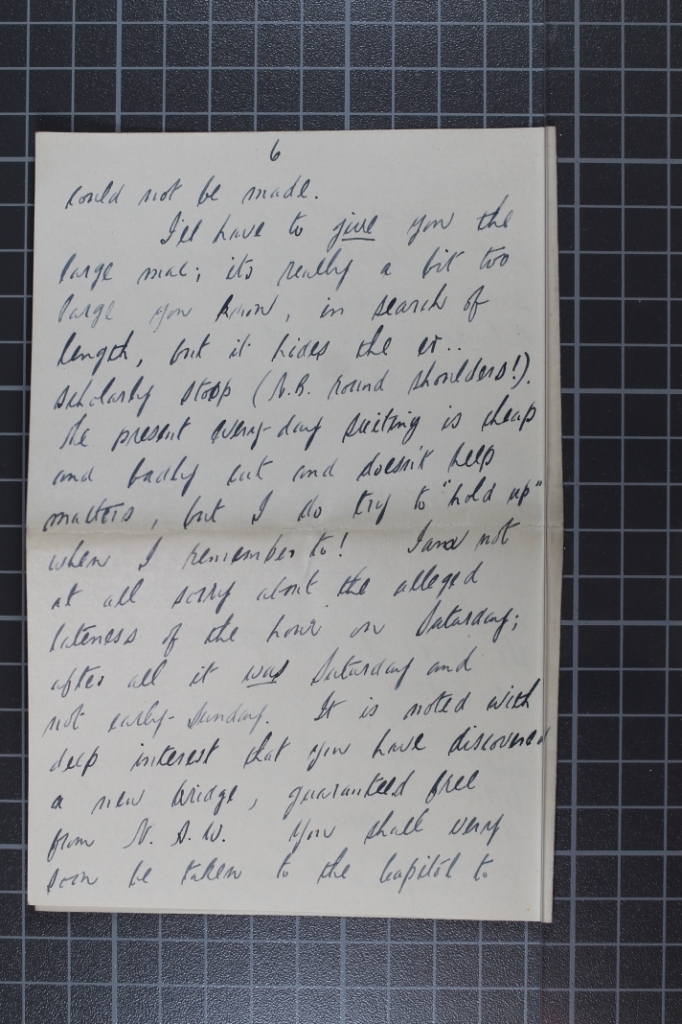 6
could not be made.
I'll have to give you the
large mac; its really a bit too
large you know, in search of
length, but it hides the er..
scholarly stoop (N.B. round shoulders!).
The present every-day suiting is cheap
and badly cut and doesn't help
matters, but I do try to "hold up"
when I remember to! I am not
at all sorry about the alleged
lateness of the hour on Saturday;
after all it was Saturday and
not early-Sunday. It is noted with
deep interest that you have discovered
a new bridge, guaranteed free
from N.S.W. You shall very
soon be taken to the Capitol to